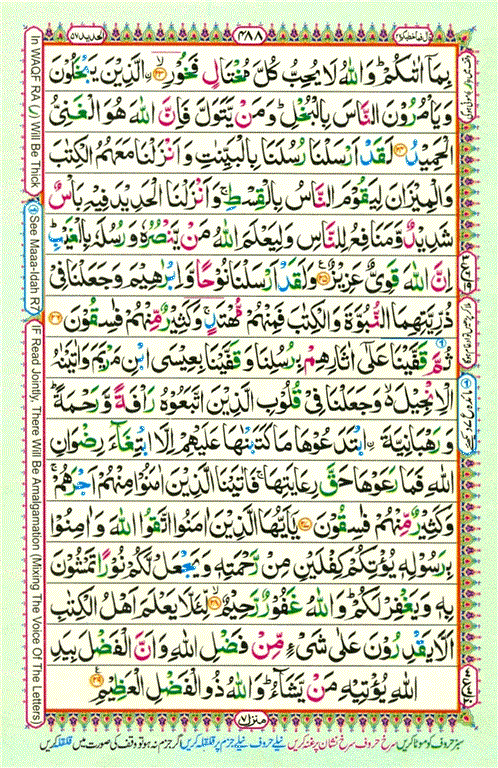 قال فما خطبكم ٢٧
٤٨٨
الحديد ٥٧
بِمَاۤ اٰتٰىكُمْ ؕ وَاللّٰهُ لَا یُحِبُّ كُلَّ مُخْتَالٍ فَخُوْرِ ۟ۙ ﴿۲۳﴾ الَّذِیْنَ یَبْخَلُوْنَ
وَیَاْمُرُوْنَ النَّاسَ بِالْبُخْلِ ؕ وَمَنْ یَّتَوَلَّ فَاِنَّ اللّٰهَ هُوَ الْغَنِیُّ
الْحَمِیْدُ ﴿۲۴﴾ لَقَدْ اَرْسَلْنَا رُسُلَنَا بِالْبَیِّنٰتِ وَاَنْزَلْنَا مَعَهُمُ الْكِتٰبَ
وَالْمِیْزَانَ لِیَقُوْمَ النَّاسُ بِالْقِسْطِ ۚ وَاَنْزَلْنَا الْحَدِیْدَ فِیْهِ بَاْسٌ
شَدِیْدٌ وَّمَنَافِعُ لِلنَّاسِ وَلِیَعْلَمَ اللّٰهُ مَنْ یَّنْصُرُهٗ وَرُسُلَهٗ بِالْغَیْبِ ؕ
اِنَّ اللّٰهَ قَوِیٌّ عَزِیْزٌ ﴿۲۵﴾ وَلَقَدْ اَرْسَلْنَا نُوْحًا وَّاِبْرٰهِیْمَ وَجَعَلْنَا فِیْ
ذُرِّیَّتِهِمَا النُّبُوَّةَ وَالْكِتٰبَ فَمِنْهُمْ مُّهْتَدٍ ۚ وَكَثِیْرٌ مِّنْهُمْ فٰسِقُوْنَ ﴿۲۶﴾
ثُمَّ قَفَّیْنَا عَلٰۤی اٰثَارِهِمْ بِرُسُلِنَا وَقَفَّیْنَا بِعِیْسَی ابْنِ مَرْیَمَ وَاٰتَیْنٰهُ
الْاِنْجِیْلَ ۙ۬ وَجَعَلْنَا فِیْ قُلُوْبِ الَّذِیْنَ اتَّبَعُوْهُ رَاْفَةً وَّرَحْمَةً ؕ
وَرَهْبَانِیَّةَ ِ۟ابْتَدَعُوْهَا مَا كَتَبْنٰهَا عَلَیْهِمْ اِلَّا ابْتِغَآءَ رِضْوَانِ
اللّٰهِ فَمَا رَعَوْهَا حَقَّ رِعَایَتِهَا ۚ فَاٰتَیْنَا الَّذِیْنَ اٰمَنُوْا مِنْهُمْ اَجْرَهُمْ ۚ
وَكَثِیْرٌ مِّنْهُمْ فٰسِقُوْنَ ﴿۲۷﴾ یٰۤاَیُّهَا الَّذِیْنَ اٰمَنُوا اتَّقُوا اللّٰهَ وَاٰمِنُوْا
بِرَسُوْلِهٖ یُؤْتِكُمْ كِفْلَیْنِ مِنْ رَّحْمَتِهٖ وَیَجْعَلْ لَّكُمْ نُوْرًا تَمْشُوْنَ
بِهٖ وَیَغْفِرْ لَكُمْ ؕ وَاللّٰهُ غَفُوْرٌ رَّحِیْمٌ ۙ ﴿۲۸﴾ لِّئَلَّا یَعْلَمَ اَهْلُ الْكِتٰبِ
اَلَّا یَقْدِرُوْنَ عَلٰی شَیْءٍ مِّنْ فَضْلِ اللّٰهِ وَاَنَّ الْفَضْلَ بِیَدِ
اللّٰهِ یُؤْتِیْهِ مَنْ یَّشَآءُ ؕ وَاللّٰهُ ذُو الْفَضْلِ الْعَظِیْمِ ﴿۲۹﴾
منزل ٧
سبز حروف کو موٹا کریں سرخ حروف سرخ نشان پر غنہ کریں نیلے حروف نیلے جزم پر قلقلہ کریں اگر جزم نہ ہو تو وقف کی صورت میں قلقلہ کریں
In WAQF RA (ر) Will Be Thick
① See Maaa-Idah R7
IF Read Jointly, There Will Be Amalgamation (Mixing The Voice Of The Letters)